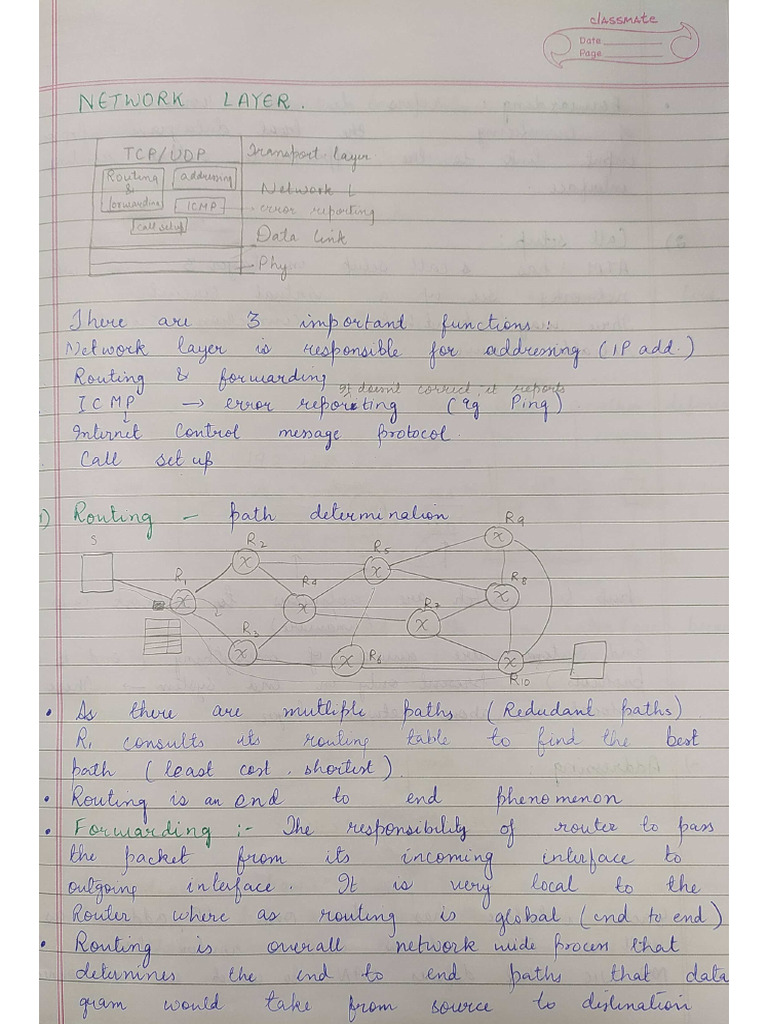 classmate
Date
Page
NETWORK LAYER.
TCP/UDP Transport layer
Routing & forwarding
addressing
Network L
ICMP error reporting
call setup
Data link
Phy
There are 3 important functions:
Network layer is responsible for addressing (IP add.)
Routing & forwarding
It doesnt correct, it reports
ICMP → error reporting (eg Ping)
Internet Control message protocol.
Call set up
1) Routing - path determination
S
R1
R2
R3
R4
R5
R6
R7
R8
R9
R10
• As there are mutliple paths (Redudant paths)
R1 consults its routing table to find the best
path (least cost, shortest).
• Routing is an end to end phenomenon
• Forwarding :- The responsibility of router to pass
the packet from its incoming interface to
outgoing interface. It is very local to the
Router where as routing is global (end to end)
• Routing is overall network wide process that
determines the end to end paths that data
gram would take from source to distination